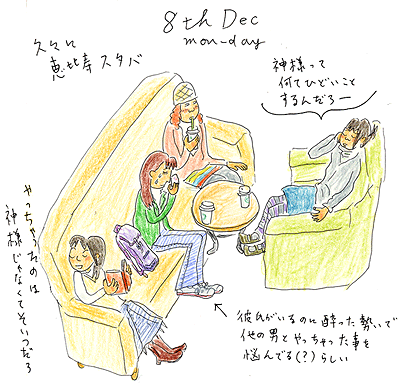 8th Dec
monday
久々に
恵比寿スタバ
神様って
何てひどいこと
するんだろー
やっちゃったのは
神様じゃなくてそいつだろ
彼氏がいるのに酔った勢いで
他の男とやっちゃった事を
悩んでる(?)らしい